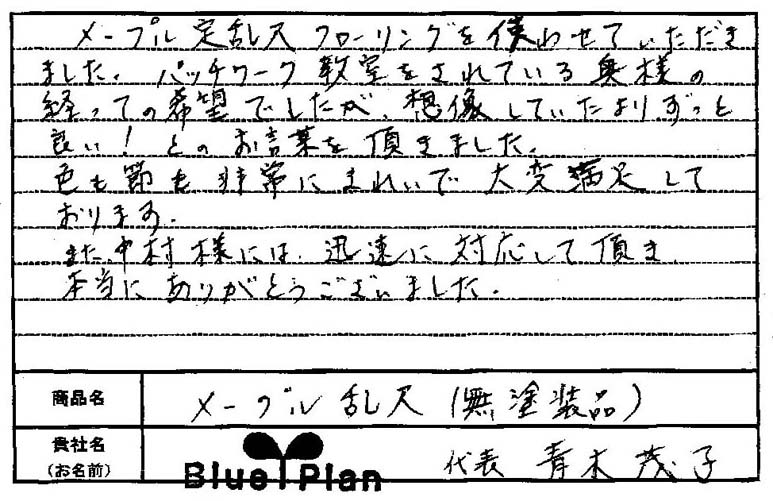 メープル定乱尺フローリングを使わせていただき
ました。パッチワーク教室をされている奥様の
経っての希望でしたが、想像していたよりずっと
良い！とのお言葉を頂きました。
色も節も非常にきれいで大変満足して
おります。
また、中村様には、迅速に対応して頂き、
本当にありがとうございました。
商品名
メープル乱尺（無塗装品）
貴社名
（お名前）
Blue Plan
代表 青木 茂子